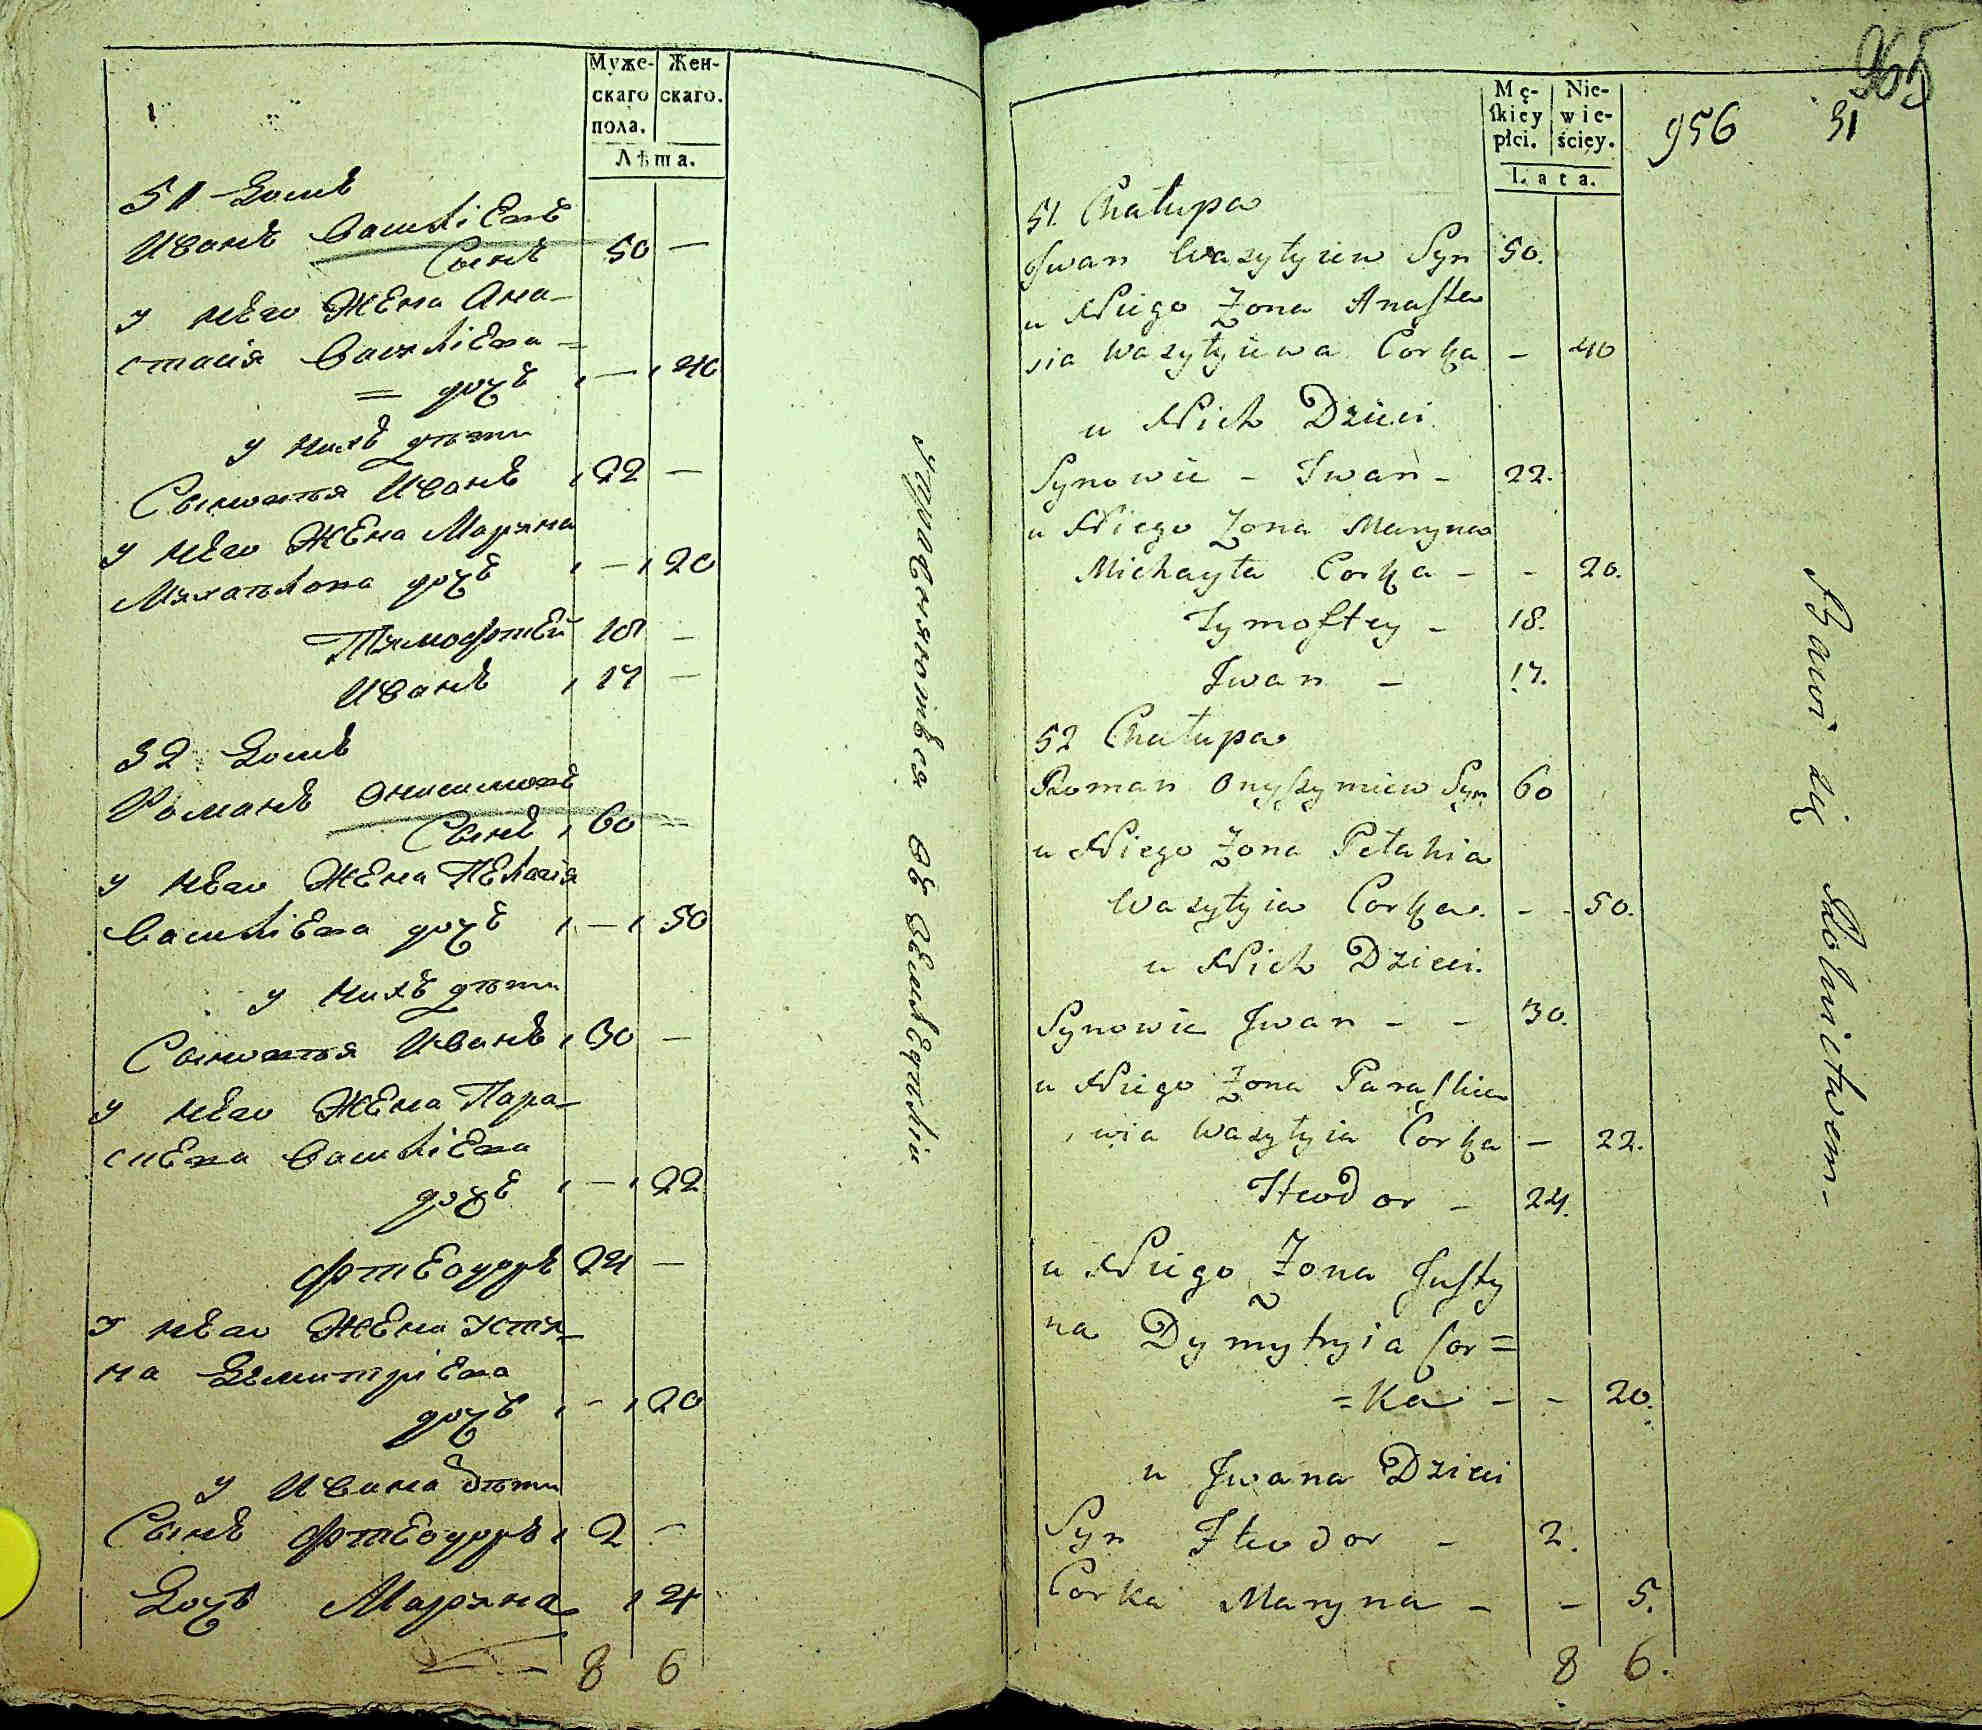 Муже-
скаго
пола.
Жен-
скаго.
Лѣта.
51 Домъ
Иванъ Василіевъ
Сынъ 50 —
у него Жена Ана-
стасія Василіева =
= дочь — 40
у нихъ дѣти
Сыновья Иванъ 22 —
у него Жена Марина
Михайлова дочь — 20
Тимофтей 18 —
Иванъ 17 —
52 Домъ
Романъ Онисимовъ
Сынъ 60 =
у него Жена Пелагія
Василіева дочь — 50
у нихъ дѣти
Сыновья Иванъ 30 —
у него Жена Пара-
сцева Василіева
дочь — 22
Фтеодоръ 24 —
у него Жена Усти-
на Демитріева
дочь - 20
у Ивана дѣти
Сынъ Фтеодоръ 2 —
Дочь Марина 4
8 6
упражняются въ земледѣліи
965
956 51
Mę-
skiey
płci.
Nie-
wie-
ściey.
Lata.
51. Chałupa
Jwan Wasylyiew Syn 50.
u Niego Żona Anasta
sia Wasylyiewa Corka - 40
u Nich Dzieci
Synowie - Iwan - 22.
u Niego Żona Maryna
Michayła Corka - - 20.
Tymoftey - 18.
Jwan - 17.
52 Chałupa
Roman Onyszymiew Syn 60
u Niego Żona Petahia
Wasylyia Corka. - - 50.
u Nich Dzieci.
Synowie Jwan - - 30.
u Niego Żona Paraskie
wia Wasylyia Corka - 22.
Fteodor - 24.
u Niego Żona Justy
na Dymytryia Cor=
=ka - - 20.
u Jwana Dzieci
Syn Fteodor - 2.
Corka Maryna - - 5.
8 6.
Bawi się Rolnictwem-